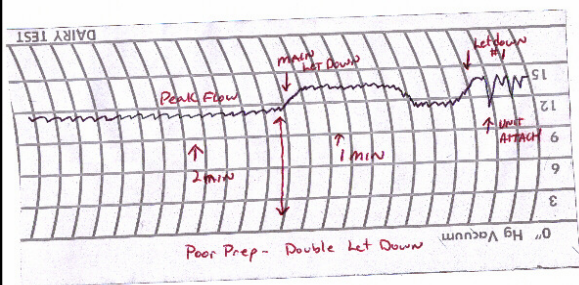 DAIRY TEST
MAIN
LET DOWN
Letdown
#1
15
Peak Flow
12
UNIT
ATTACH
9
1 min
2 min
6
3
0" Hg Vacuum
Poor Prep - Double Let Down